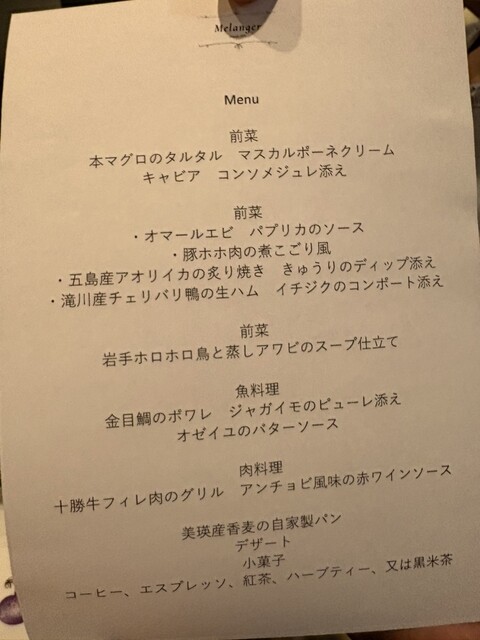 Melanger
Menu
前菜
本マグロのタルタル　マスカルポーネクリーム
キャビア　コンソメジュレ添え
前菜
・オマールエビ　パプリカのソース
・豚ホホ肉の煮こごり風
・五島産アオリイカの炙り焼き　きゅうりのディップ添え
・滝川産チェリバリ鴨の生ハム　イチジクのコンポート添え
前菜
岩手ホロホロ鳥と蒸しアワビのスープ仕立て
魚料理
金目鯛のポワレ　ジャガイモのピューレ添え
オゼイユのバターソース
肉料理
十勝牛フィレ肉のグリル　アンチョビ風味の赤ワインソース
美瑛産香麦の自家製パン
デザート
小菓子
コーヒー、エスプレッソ、紅茶、ハーブティー、又は黒米茶